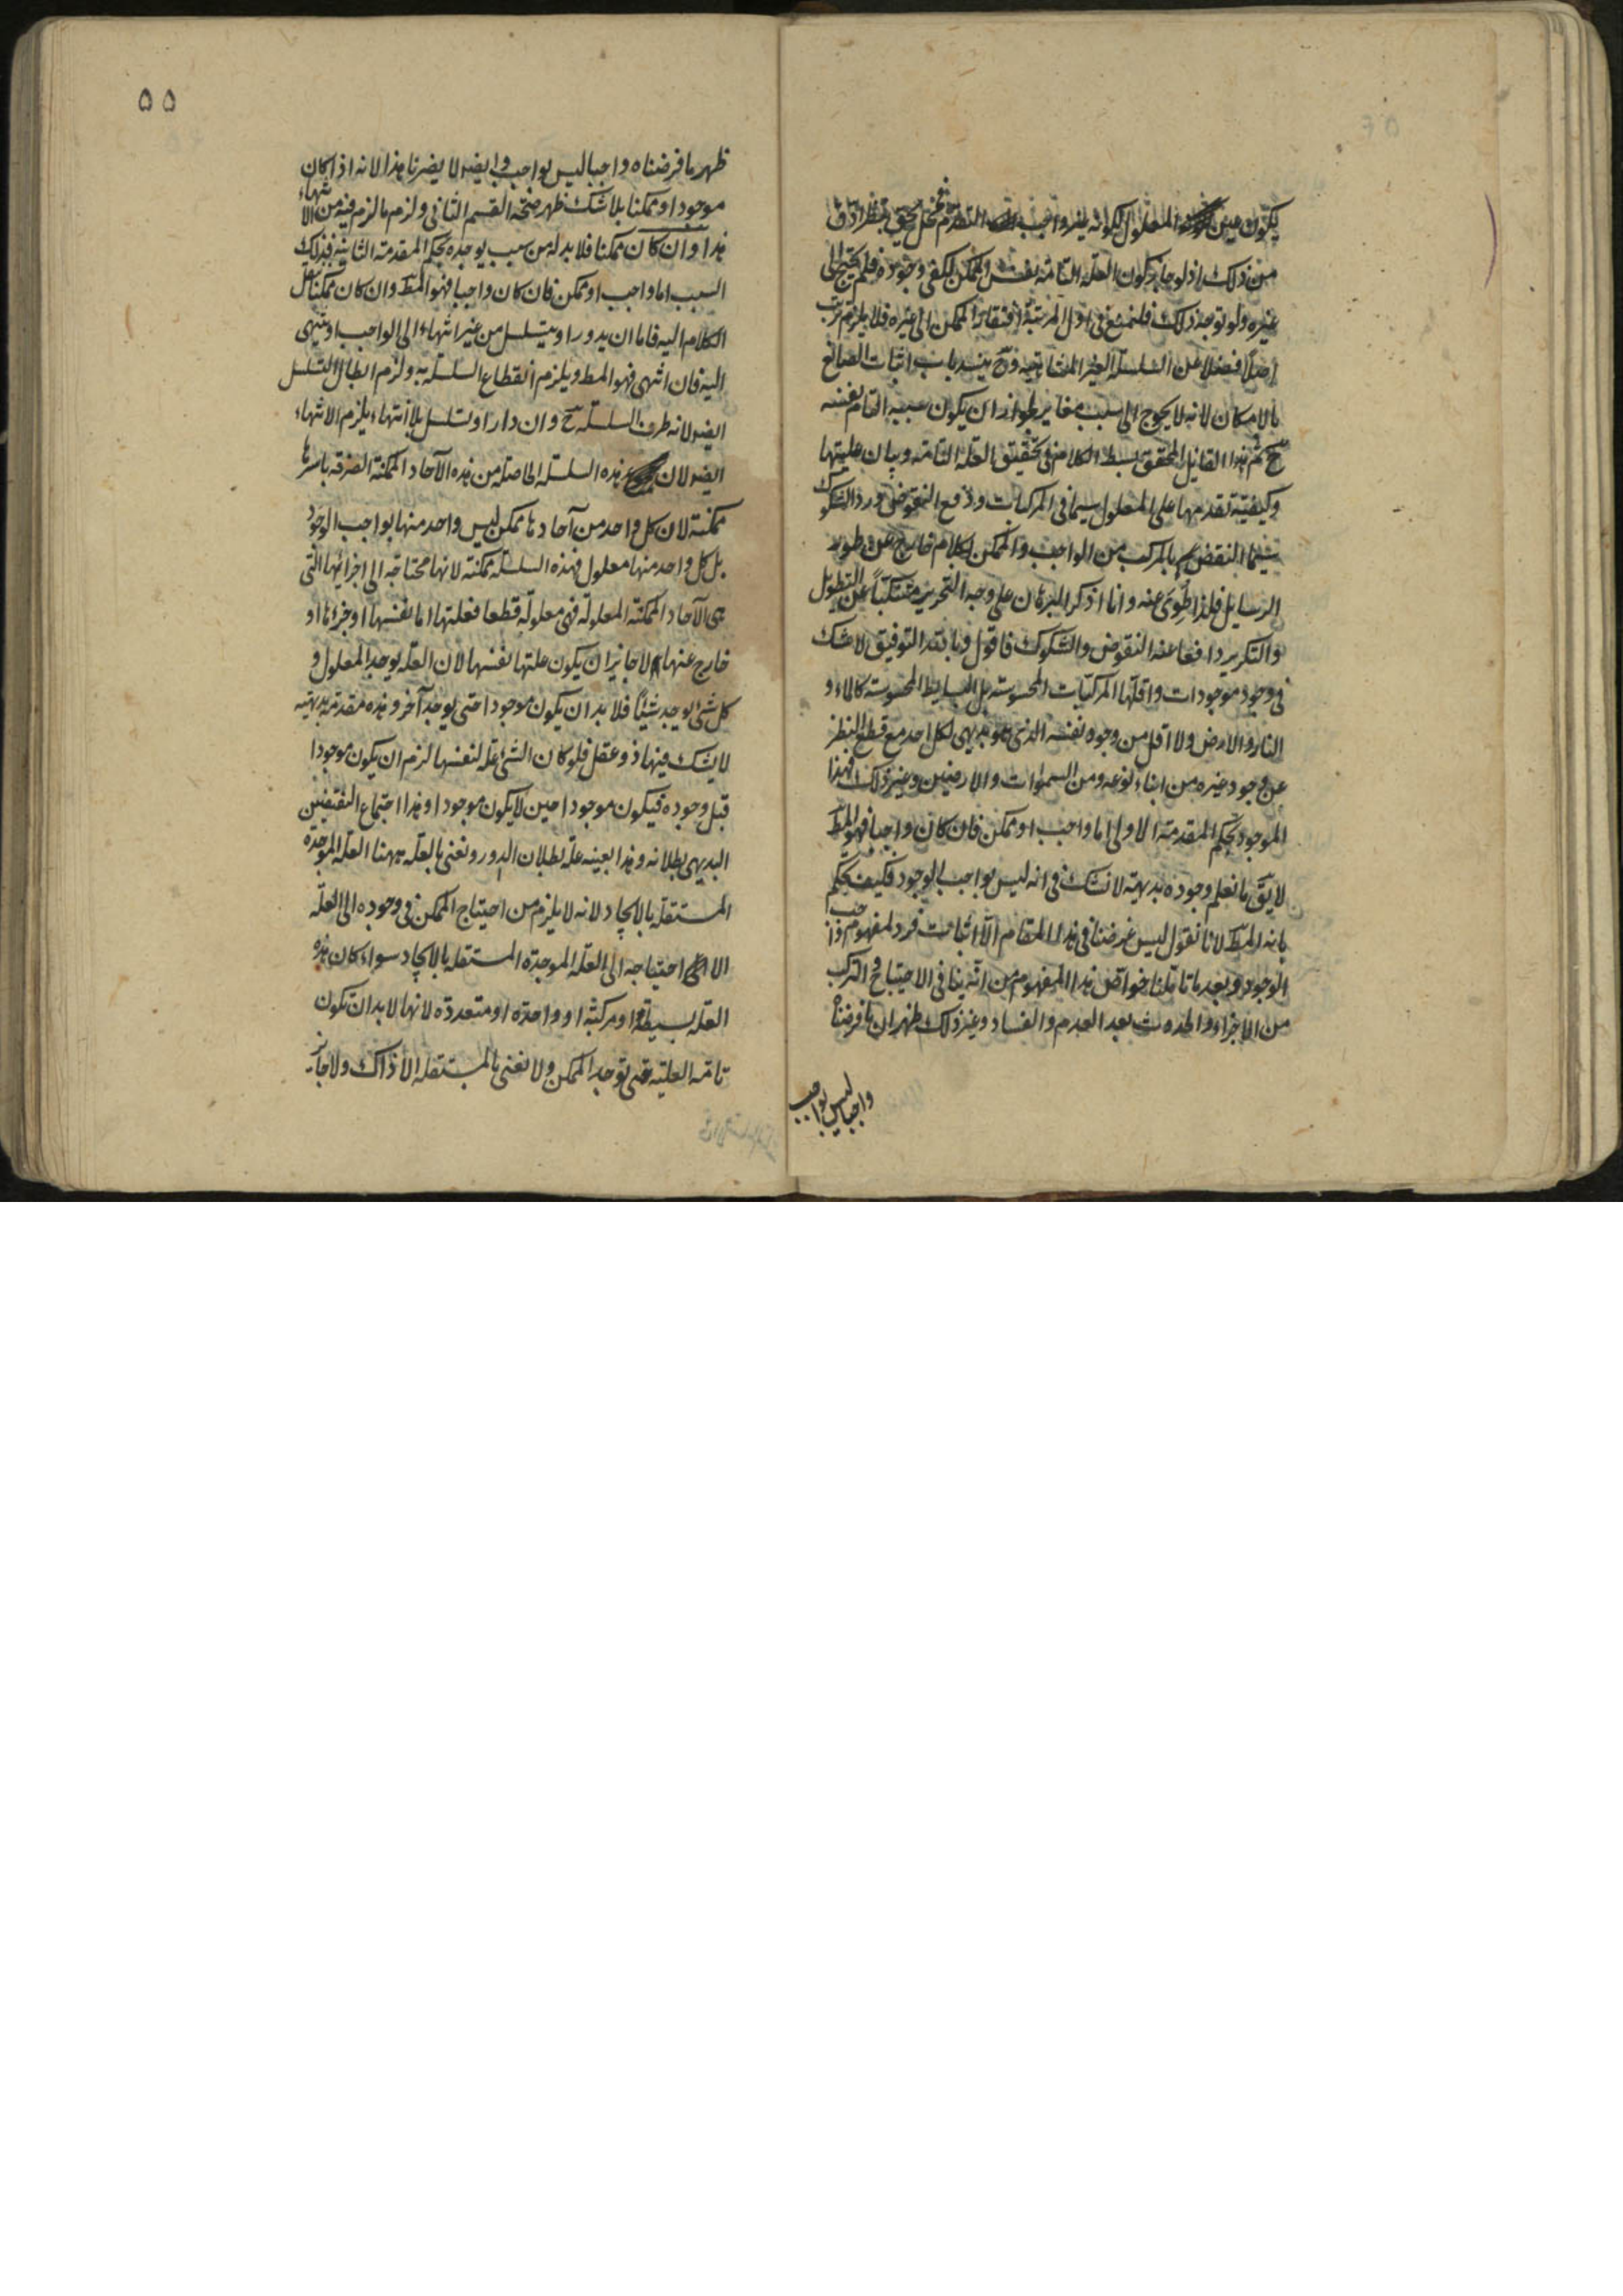 يكون عين المعلول لكونه غير واجب التقدم فمختل محقق بنظر ادق
من ذلك اذ لو جاز كون العلة التامة نفس الممكن لكفى وجوده فلم يحتج الى
غيره ولو توجه ذلك فلنمنع في اول المرتبة افتقار الممكن الى غيره فلا يلزم ترتب
اصلا فضلا عن السلسلة الغير المتناهية وح ينسد باب اثبات الصانع
بالامكان لانه لا يحوج الى سبب مغاير لجواز ان يكون سببه التام نفسه
ح ثم هذا القائل المحقق بسط الكلام في تحقيق العلة التامة وبيان عليتها
وكيفية تقدمها على المعلول سيما في المركبات ودفع النقوض ورد الشكوك
سيما النقض بالمركب من الواجب والممكن بكلام خارج عن طور
الرسايل فلذا طوى عنه وانا اذكر البرهان على وجه التحرير متنكبا عن التطويل
والتكرير دافعا عنه النقوض والشكوك فاقول وبالله التوفيق لا شك
في وجود موجودات واقلها المركبات المحسوسة بل البسايط المحسوسة كالماء و
النار والارض ولا اقل من وجود نفسه الذي هو بديهي لكل احد مع قطع النظر
عن وجود غيره من ابناء نوعه ومن السموات والارضين وغير ذلك فهذا
الموجود بحكم المقدمة الاولى اما واجب او ممكن فان كان واجبا فهو المط
لا يق ما نعلم وجوده بديهة لا نشك في انه ليس بواجب الوجود فكيف يحكم
بانه المط لانا نقول ليس غرضنا في هذا المقام الا اثبات فرد لمفهوم واجب
الوجود وبعد ما تأملنا خواص هذا المفهوم من انه ينافي الاحتياج والتركب
من الاجزاء والحدوث بعد العدم والفساد وغير ذلك ظهر ان ما فرضناه
واجبا ليس بواجب
٥٥
ظهر ما فرضناه واجبا ليس بواجب وايضا لا يضرنا هذا لانه اذا كان
موجودا وممكنا بلا شك ظهر صحة القسم الثاني ولزم ما لزم فيه من الانتهاء
هذا وان كان ممكنا فلا بد له من سبب يوجده بحكم المقدمة الثانية فذلك
السبب اما واجب او ممكن فان كان واجبا فهو المط وان كان ممكنا ننقل
الكلام اليه فاما ان يدور او يتسلسل من غير انتهاء الى الواجب او ينتهى
اليه فان انتهى فهو المط ويلزم انقطاع السلسلة به ولزم ابطال التسلسل
ايضا لانه طرف السلسلة ح وان دار او تسلسل بلا انتهاء يلزم الانتهاء
ايضا لان هذه السلسلة الحاصلة من هذه الآحاد الممكنة الصرفة باسرها
ممكنة لان كل واحد من آحادها ممكن ليس واحد منها بواجب الوجود
بل كل واحد منها معلول فهذه السلسلة ممكنة لانها محتاجة الى اجزائها التي
هى الآحاد الممكنة المعلولة فهى معلولة قطعا فعلتها اما نفسها او جزاها او
خارج عنها لا جايز ان يكون علتها نفسها لان العلة يوجد المعلول و
كل شئ يوجد شيئا فلا بد ان يكون موجودا حتى يوجد آخر وهذه مقدمة بديهية
لا يشك فيها ذو عقل فلو كان الشئ علة لنفسها لزم ان يكون موجودا
قبل وجوده فيكون موجودا حين لا يكون موجودا وهذا اجتماع النقيضين
البديهى بطلانه وهذا بعينه علة بطلان الدور ونعنى بالعلة ههنا العلة الموجدة
المستقلة بالايجاد لانه لا يلزم من احتياج الممكن في وجوده الى العلة
الا احتياجه الى العلة الموجدة المستقلة بالايجاد سواء كان هذه
العلة بسيطة او مركبة او واحدة او متعددة لانها لا بد ان تكون
تامة العلية حتى توجد الممكن ولا نعنى بالمستقلة الا ذاك ولا جائز